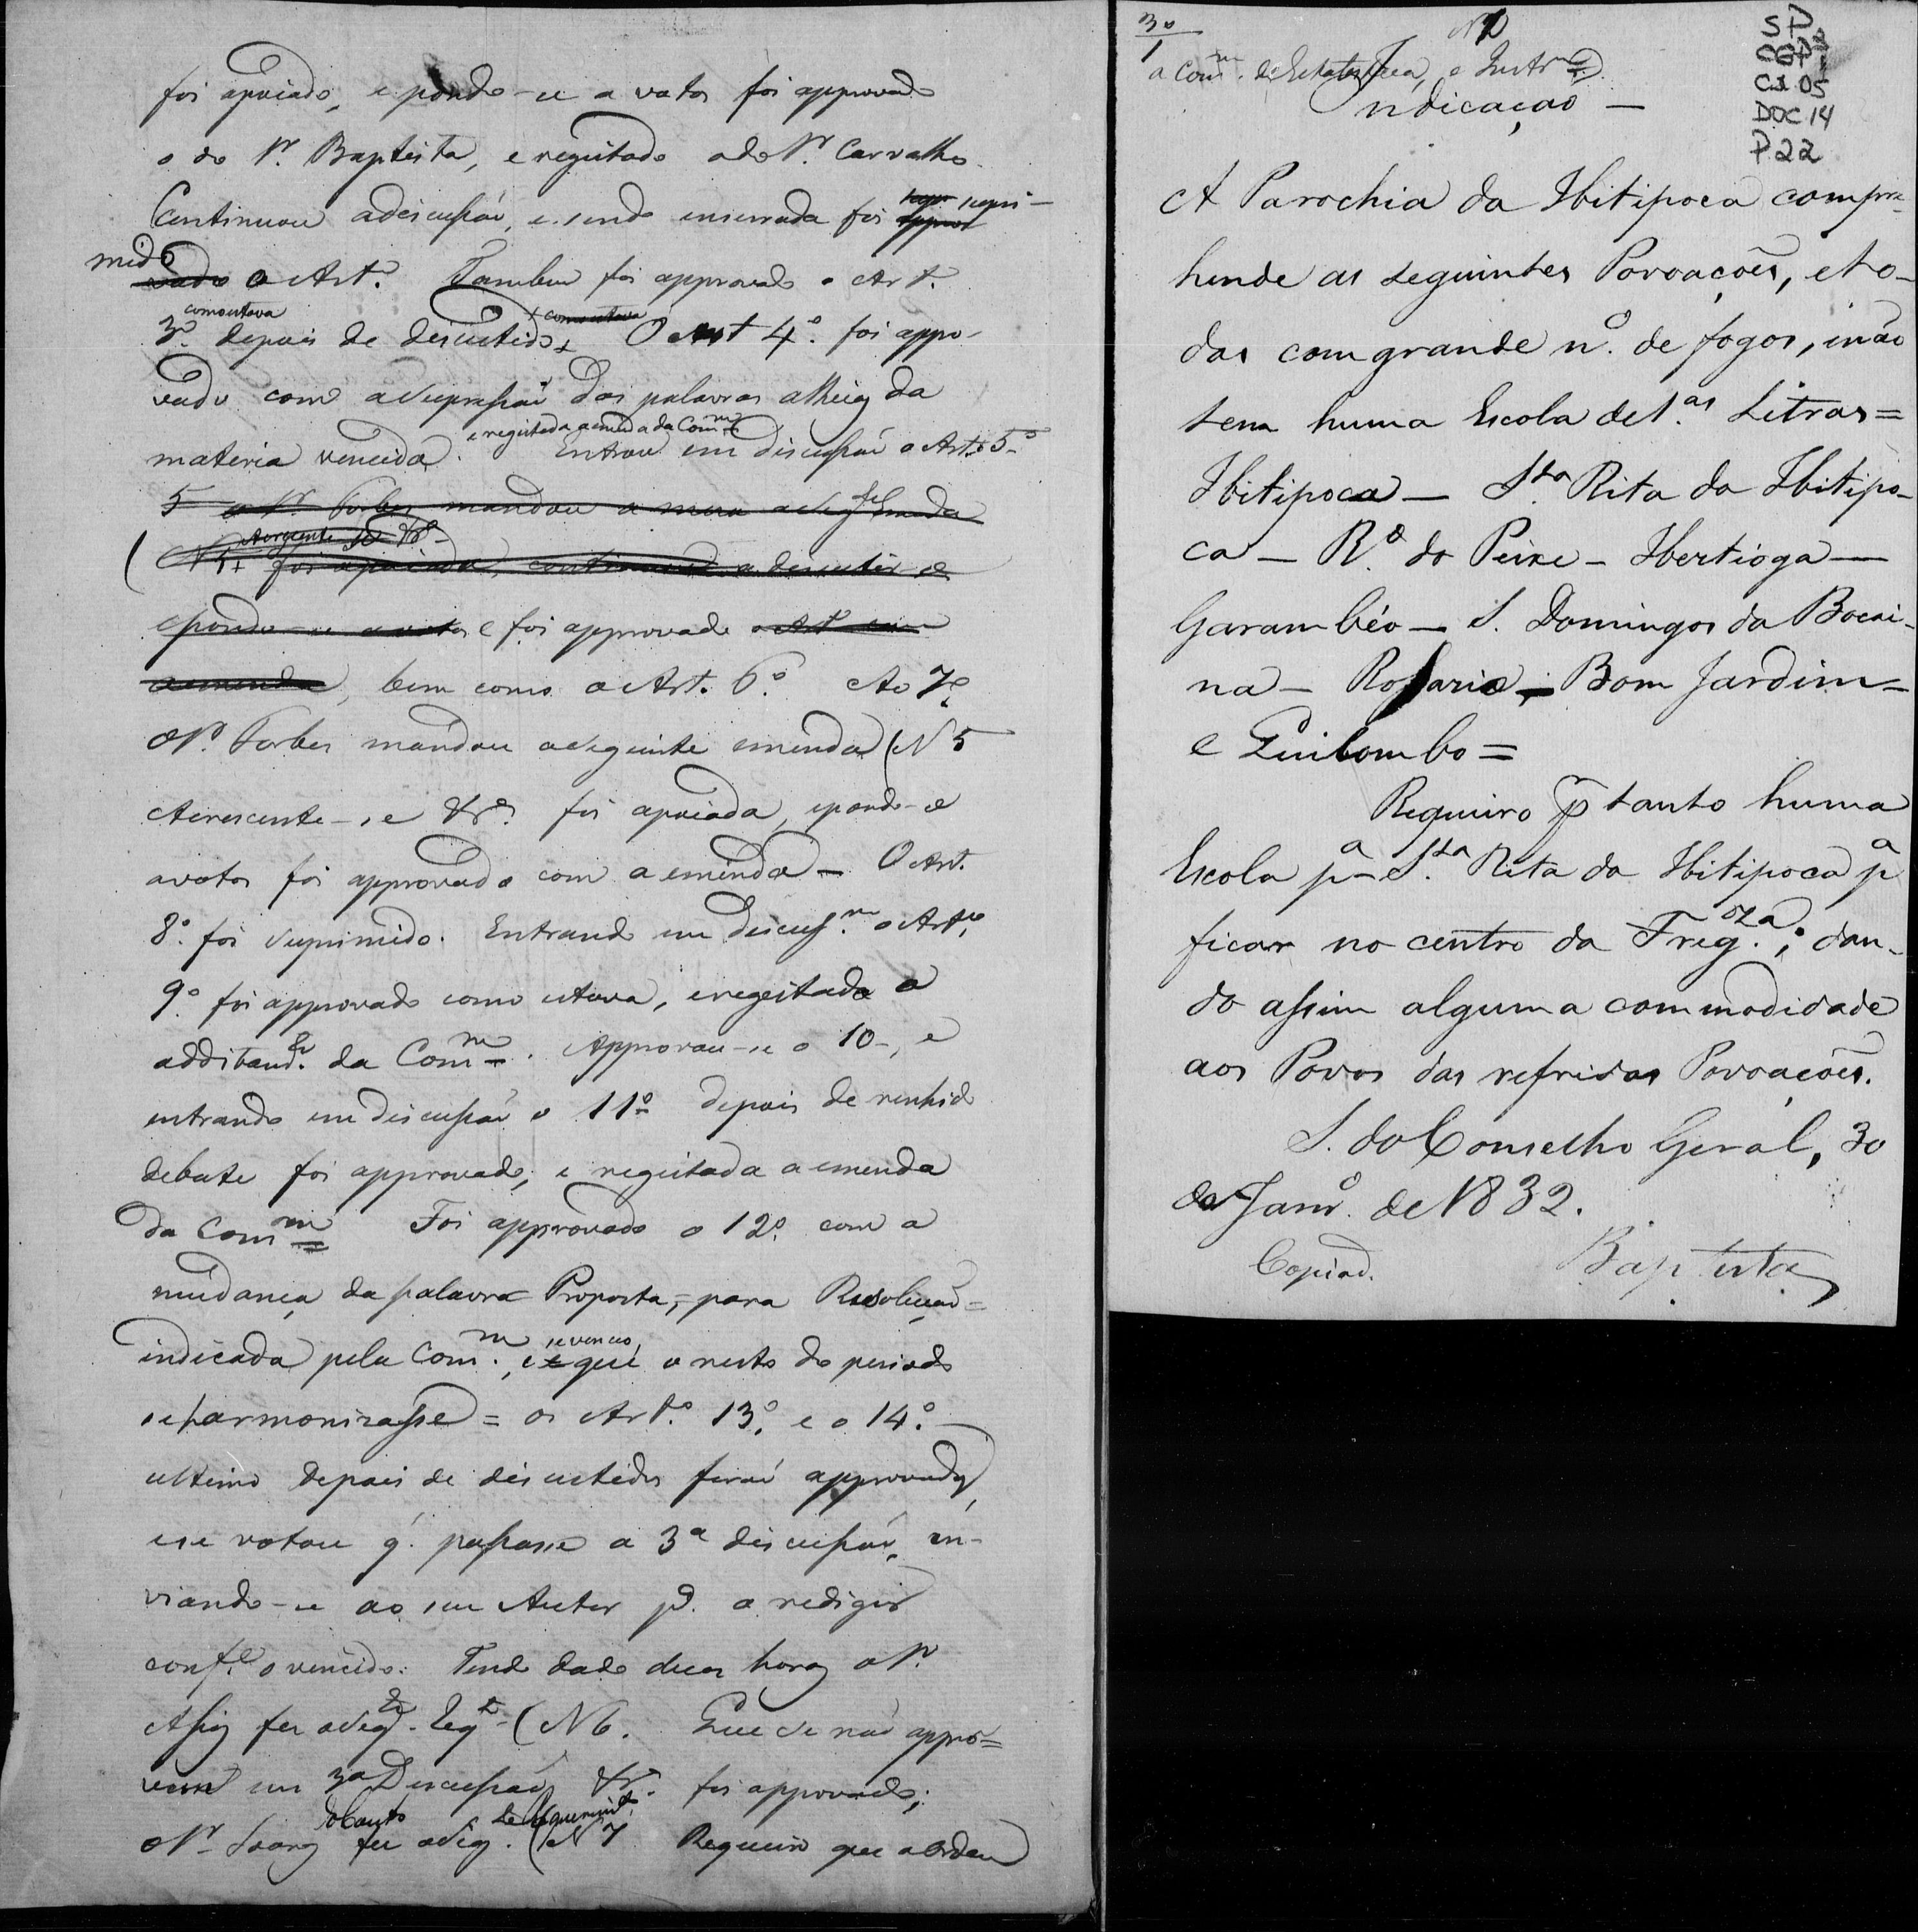 foi apoiado, e pondo-se a votos foi approvado
o do Sr. Baptista, e regeitado o do Sr. Carvalho
Continuou a discussão, e sendo encerrada foi supri-
mido o Art. Tambem foi approvado o Art.
3º como estava depois de discutido. O Art 4º. foi appo-
vado com a supressão das palavras alheias da
materia vencida. e regeitada a emenda da Comm. Entrou em discussão o Art. 5º
5 o Sr. Forbes mandou a mesa a seg. Emenda
(N 5. Acrescente-se &ª foi apoiada, continuou a discutir-se
e pondo-se a votos e foi approvado o Art com
a emenda, bem como o Art. 6º Ao 7º
o Sr. Forbes mandou a seguinte emenda (N 5
Acrescente-se &ª foi apoiada, e pondo-se
a votos foi approvado com a emenda — O Art.
8º. foi suprimido. Entrando em discus.m o Art.
9º foi approvado como estava, e regeitada a
additand. da Comm. Approvou-se o 10, e
entrando em discussão o 11º depois de renhido
debate foi approvado, e regeitada a emenda
da Comm Foi approvado o 12º com a
mudança da palavra Proposta, = para Resolução =
indicada pela Comm., e se venceo que o resto do periodo
se harmonizasse = os Art.º 13º, e o 14º. —
ultimo depois de discutidos forão approvados,
e se votou q. passasse a 3ª discussão, en-
viando-se ao seu Autor p.ª a redigir
conf.e o vencido. Tendo dado duas horas o Sr.
Assis fez o seg.te Req.to (N 6. Que se não appro=
vem em 3ª Discussão &ª. foi approvado;
o Sr Soares do Couto fez o seg. Requerimt.º (N 7 Requeiro que a ordem
3º
1
Nº
a Comm. de Estatistica, e Instr.m P.
Indicação —
SP
CGP 1
Cx. 05
DOC 14
P. 22
A Parochia da Ibitipoca compre-
hende as seguintes Povoações, e to-
das com grande nº. de fogos, e não
tem huma Escola de 1.as Letras =
Ibitipoca — S.ta Rita da Ibitipo-
ca — R.º do Peixe — Ibertioga —
Garambéo — S. Domingos da Bocai-
na — Rossario — Bom Jardim —
e Quilombo =
Requeiro p tanto huma
Escola pª S.ta Rita da Ibitipoca pª
ficar no centro da Freg.za; dan-
do assim alguma commodidade
aos Povos das refridas Povoações.
S. do Conselho Geral, 30
de Janrº. de 1832.
Copiad.
Baptista